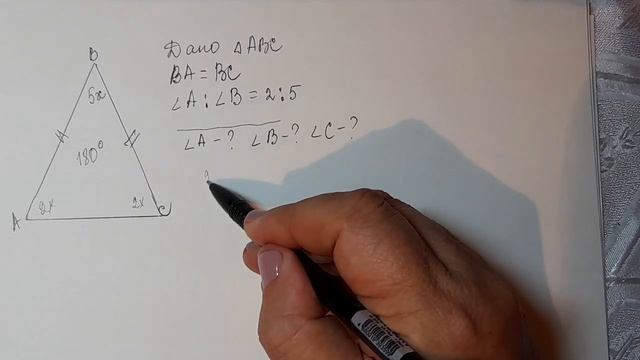 B
5x
180°
A
2x
2x
C
Дано △ABC
BA = BC
∠A : ∠B = 2 : 5
∠A - ? ∠B - ? ∠C - ?